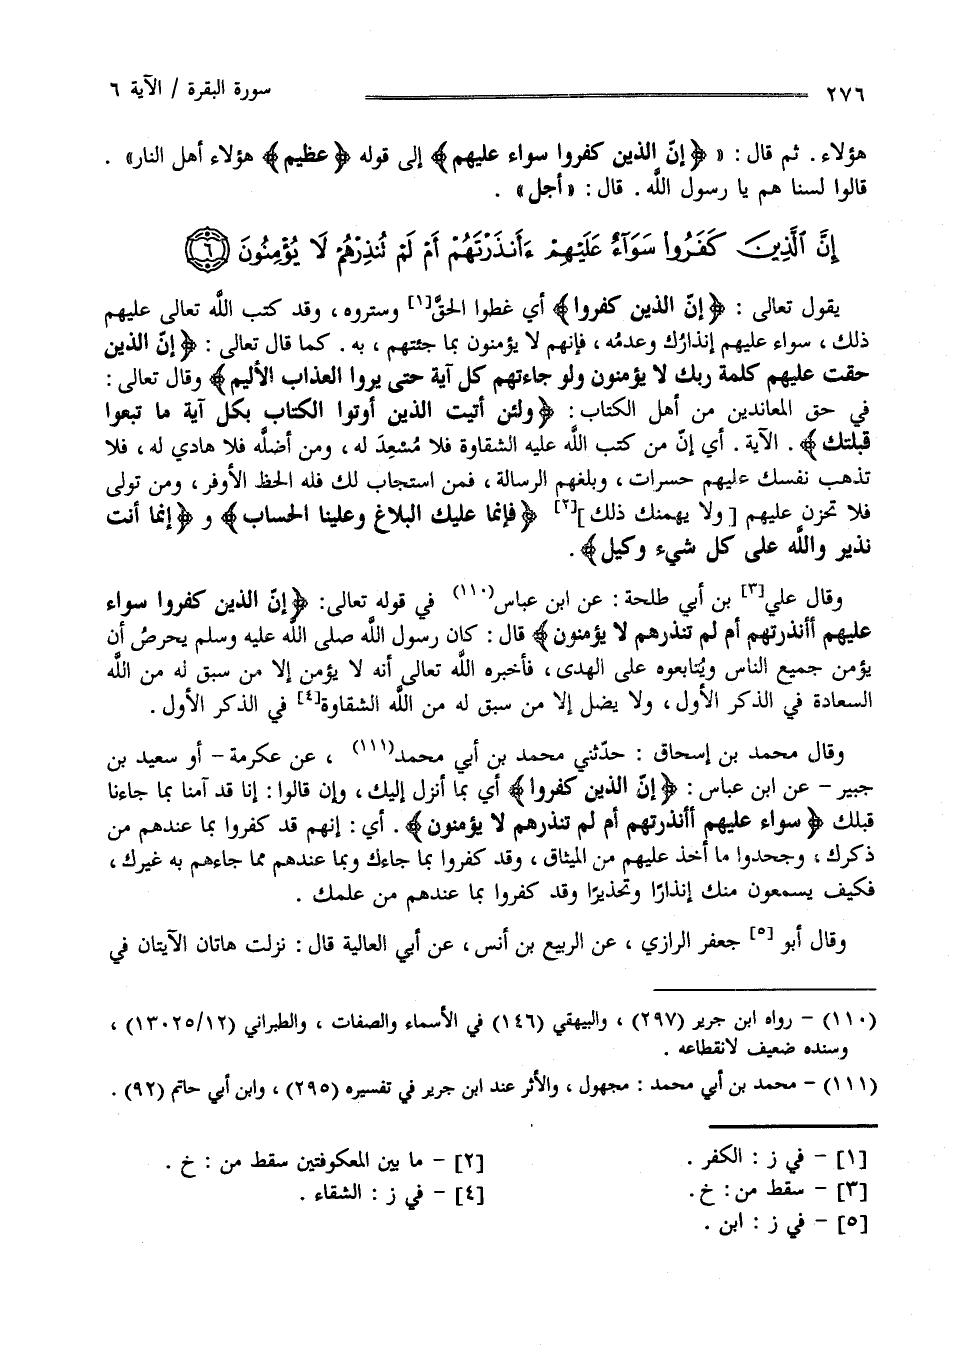 ٢٧٦ سورة البقرة / الآية ٦
هؤلاء . ثم قال : « ﴿ إنّ الذين كفروا سواء عليهم ﴾ إلى قوله ﴿ عظيم ﴾ هؤلاء أهل النار» .
قالوا لسنا هم يا رسول اللَّه . قال : «أجل» .
إِنَّ ٱلَّذِينَ كَفَرُواْ سَوَآءٌ عَلَيْهِمْ ءَأَنذَرْتَهُمْ أَمْ لَمْ تُنذِرْهُمْ لَا يُؤْمِنُونَ ٦
يقول تعالى : ﴿ إنّ الذين كفروا ﴾ أي غطوا الحقَّ[١] وستروه ، وقد كتب اللَّه تعالى عليهم
ذلك ، سواء عليهم إنذارُك وعدمُه ، فإنهم لا يؤمنون بما جئتهم ، به . كما قال تعالى : ﴿ إنّ الذين
حقت عليهم كلمة ربك لا يؤمنون ولو جاءتهم كل آية حتى يروا العذاب الأليم ﴾ وقال تعالى :
في حق المعاندين من أهل الكتاب : ﴿ ولئن أتيت الذين أوتوا الكتاب بكل آية ما تبعوا
قبلتك ﴾ . الآية . أي إنّ من كتب اللَّه عليه الشقاوة فلا مُسْعِدَ له ، ومن أضلَّه فلا هادي له ، فلا
تذهب نفسك عليهم حسرات ، وبلغهم الرسالة ، فمن استجاب لك فله الحظ الأوفر ، ومن تولى
فلا تحزن عليهم [ ولا يهمنك ذلك ][٢] ﴿ فإنما عليك البلاغ وعلينا الحساب ﴾ و ﴿ إنما أنت
نذير واللَّه على كل شيء وكيل ﴾ .
وقال علي[٣] بن أبي طلحة : عن ابن عباس(١١٠) في قوله تعالى : ﴿ إنّ الذين كفروا سواء
عليهم أأنذرتهم أم لم تنذرهم لا يؤمنون ﴾ قال : كان رسول اللَّه صلى اللَّه عليه وسلم يحرصُ أن
يؤمن جميع الناس ويُتابعوه على الهدى ، فأخبره اللَّه تعالى أنه لا يؤمن إلا من سبق له من اللَّه
السعادة في الذكر الأول ، ولا يضل إلا من سبق له من اللَّه الشقاوة[٤] في الذكر الأول .
وقال محمد بن إسحاق : حدّثني محمد بن أبي محمد(١١١) ، عن عكرمة – أو سعيد بن
جبير – عن ابن عباس : ﴿ إنّ الذين كفروا ﴾ أي بما أنزل إليك ، وإن قالوا : إنا قد آمنا بما جاءنا
قبلك ﴿ سواء عليهم أأنذرتهم أم لم تنذرهم لا يؤمنون ﴾ . أي : إنهم قد كفروا بما عندهم من
ذكرك ، وجحدوا ما أخذ عليهم من الميثاق ، وقد كفروا بما جاءك وبما عندهم مما جاءهم به غيرك ،
فكيف يسمعون منك إنذارًا وتحذيرًا وقد كفروا بما عندهم من علمك .
وقال أبو [٥] جعفر الرازي ، عن الربيع بن أنس ، عن أبي العالية قال : نزلت هاتان الآيتان في
(١١٠) – رواه ابن جرير (٢٩٧) ، والبيهقي (١٤٦) في الأسماء والصفات ، والطبراني (١٣٠٢٥/١٢) ،
وسنده ضعيف لانقطاعه .
(١١١) – محمد بن أبي محمد : مجهول ، والأثر عند ابن جرير في تفسيره (٢٩٥) ، وابن أبي حاتم (٩٢) .
[١] – في ز : الكفر . [٢] – ما بين المعكوفتين سقط من : خ .
[٣] – سقط من : خ . [٤] – في ز : الشقاء .
[٥] – في ز : ابن .